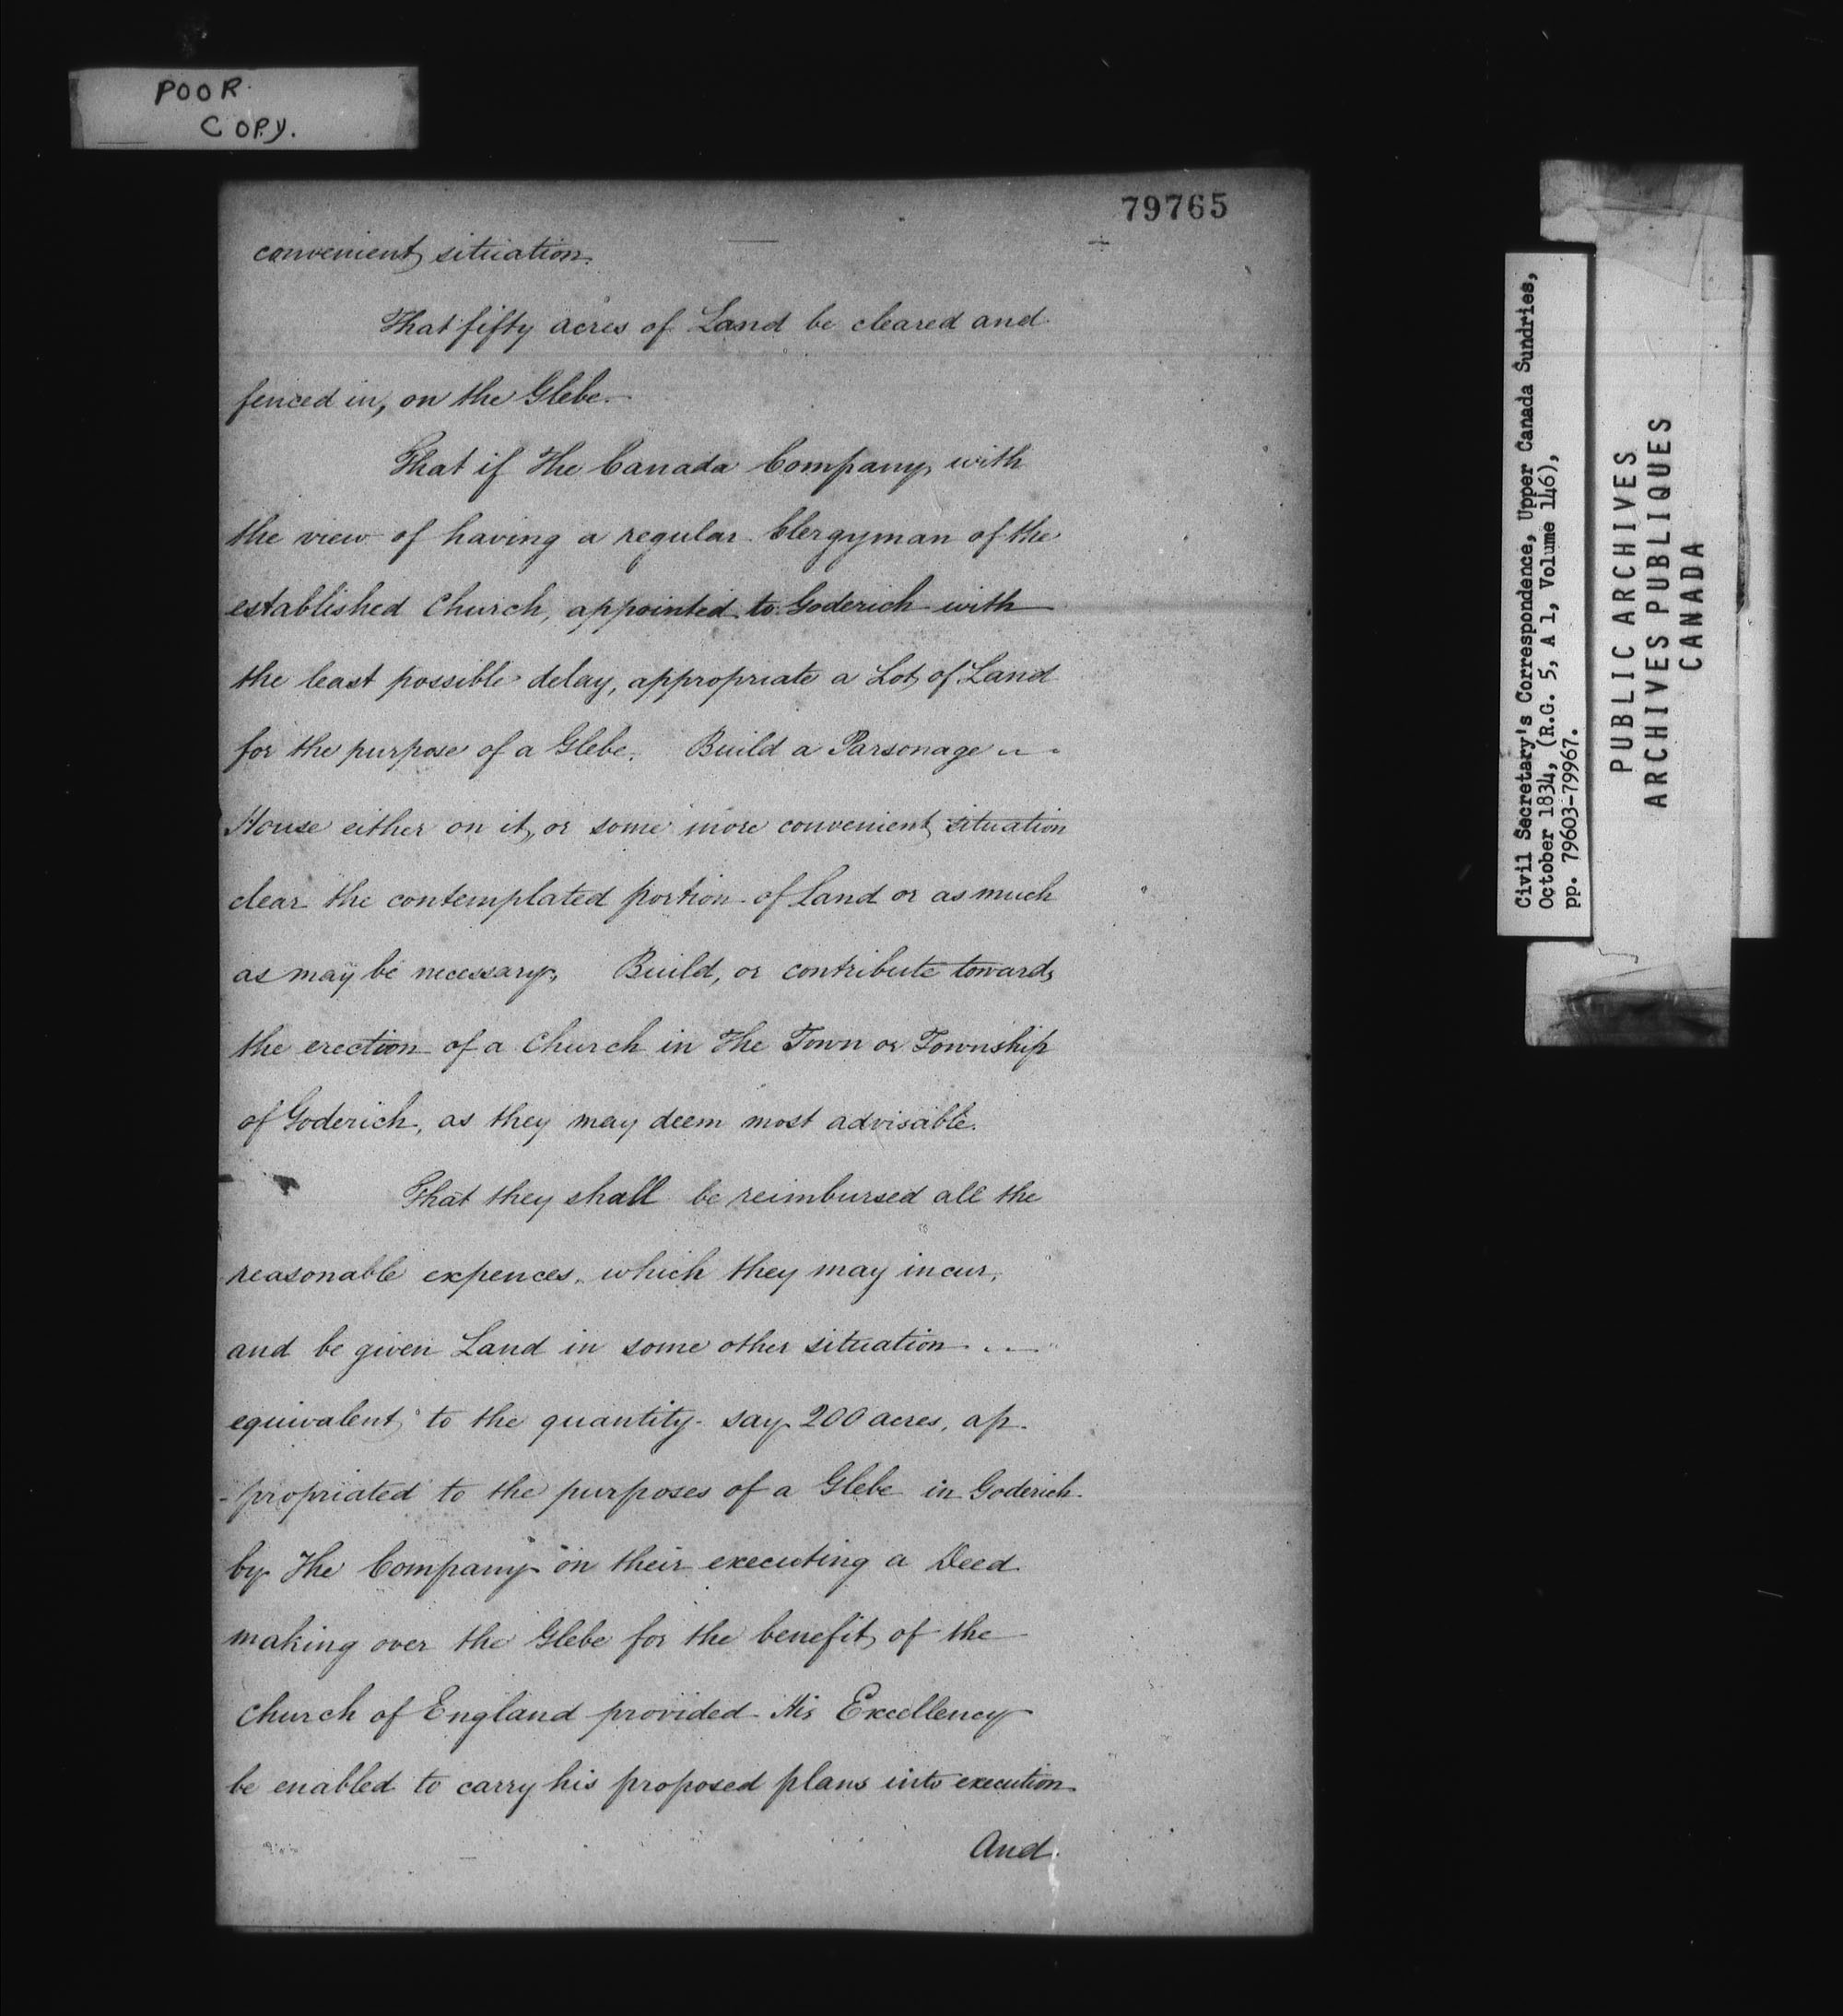 POOR
COPY.
79765
convenient situation.
That fifty acres of Land be cleared and
fenced in, on the Glebe.
That if The Canada Company, with
the view of having a regular Clergyman of the
established Church, appointed to Goderich with
the least possible delay, appropriate a Lot of Land
for the purpose of a Glebe. Build a Parsonage
House either on it, or some more convenient situation
clear the contemplated portion of land or as much
as may be necessary, Build, or contribute towards
the erection of a Church in The Town or Township
of Goderich, as they may deem most advisable.
That they shall be reimbursed all the
reasonable expences, which they may incur,
and be given Land in some other situation
equivalent to the quantity say 200 acres, ap-
-propriated to the purposes of a Glebe in Goderich
by The Company on their executing a Deed
making over the Glebe for the benefit of the
Church of England provided His Excellency
be enabled to carry his proposed plans into execution
And
Civil Secretary's Correspondence, Upper Canada Sundries,
October 1834, (R.G. 5, A 1, Volume 146),
pp. 79603-79967.
PUBLIC ARCHIVES
ARCHIVES PUBLIQUES
CANADA